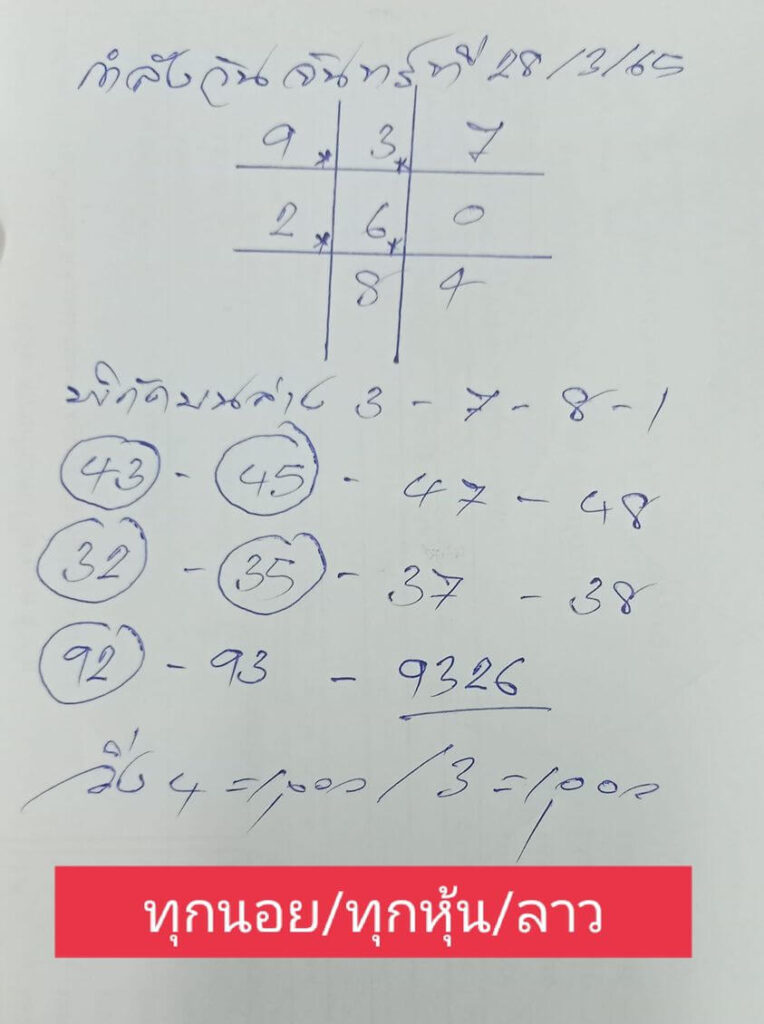 กำลังวันจันทร์ที่ 28/3/65
9 * 3 * 7
2 * 6 * 0
8 4
พิกัดบนล่าง 3 - 7 - 8 - 1
43 - 45 - 47 - 48
32 - 35 - 37 - 38
92 - 93 - 9326
วิ่ง 4 = 1,000 / 3 = 1,000
ทุกนอย/ทุกหุ้น/ลาว